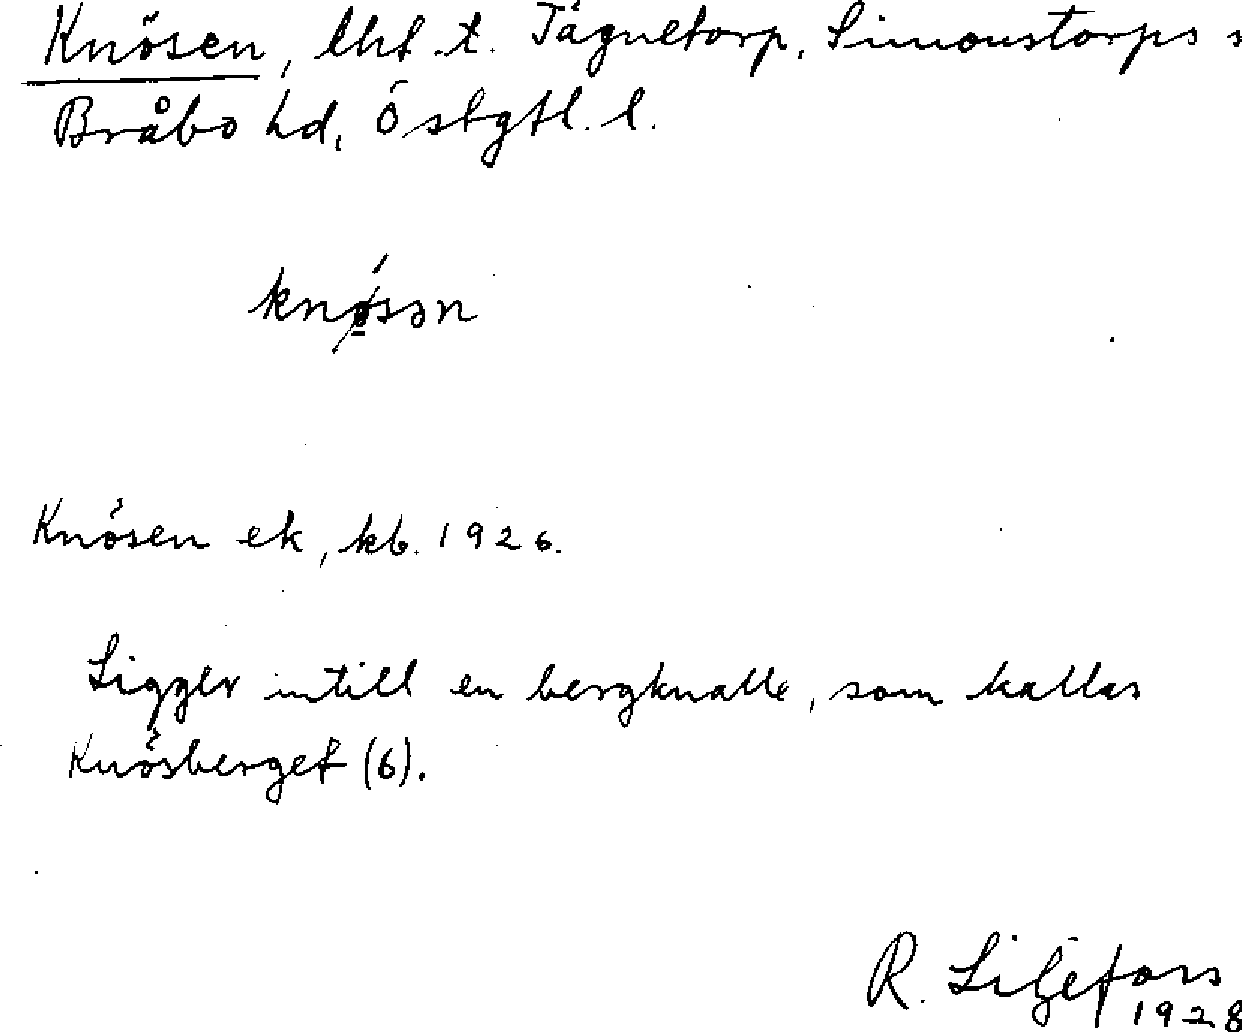 Knösen, lht t. Tägnetorp, Simonstorps s
Bråbo hd, Östgtl. l.
knø̀sən
Knösen ek, kb. 1926.
Ligger intill en bergknalle, som kallas
Knösberget (6).
R. Liljefors
1928